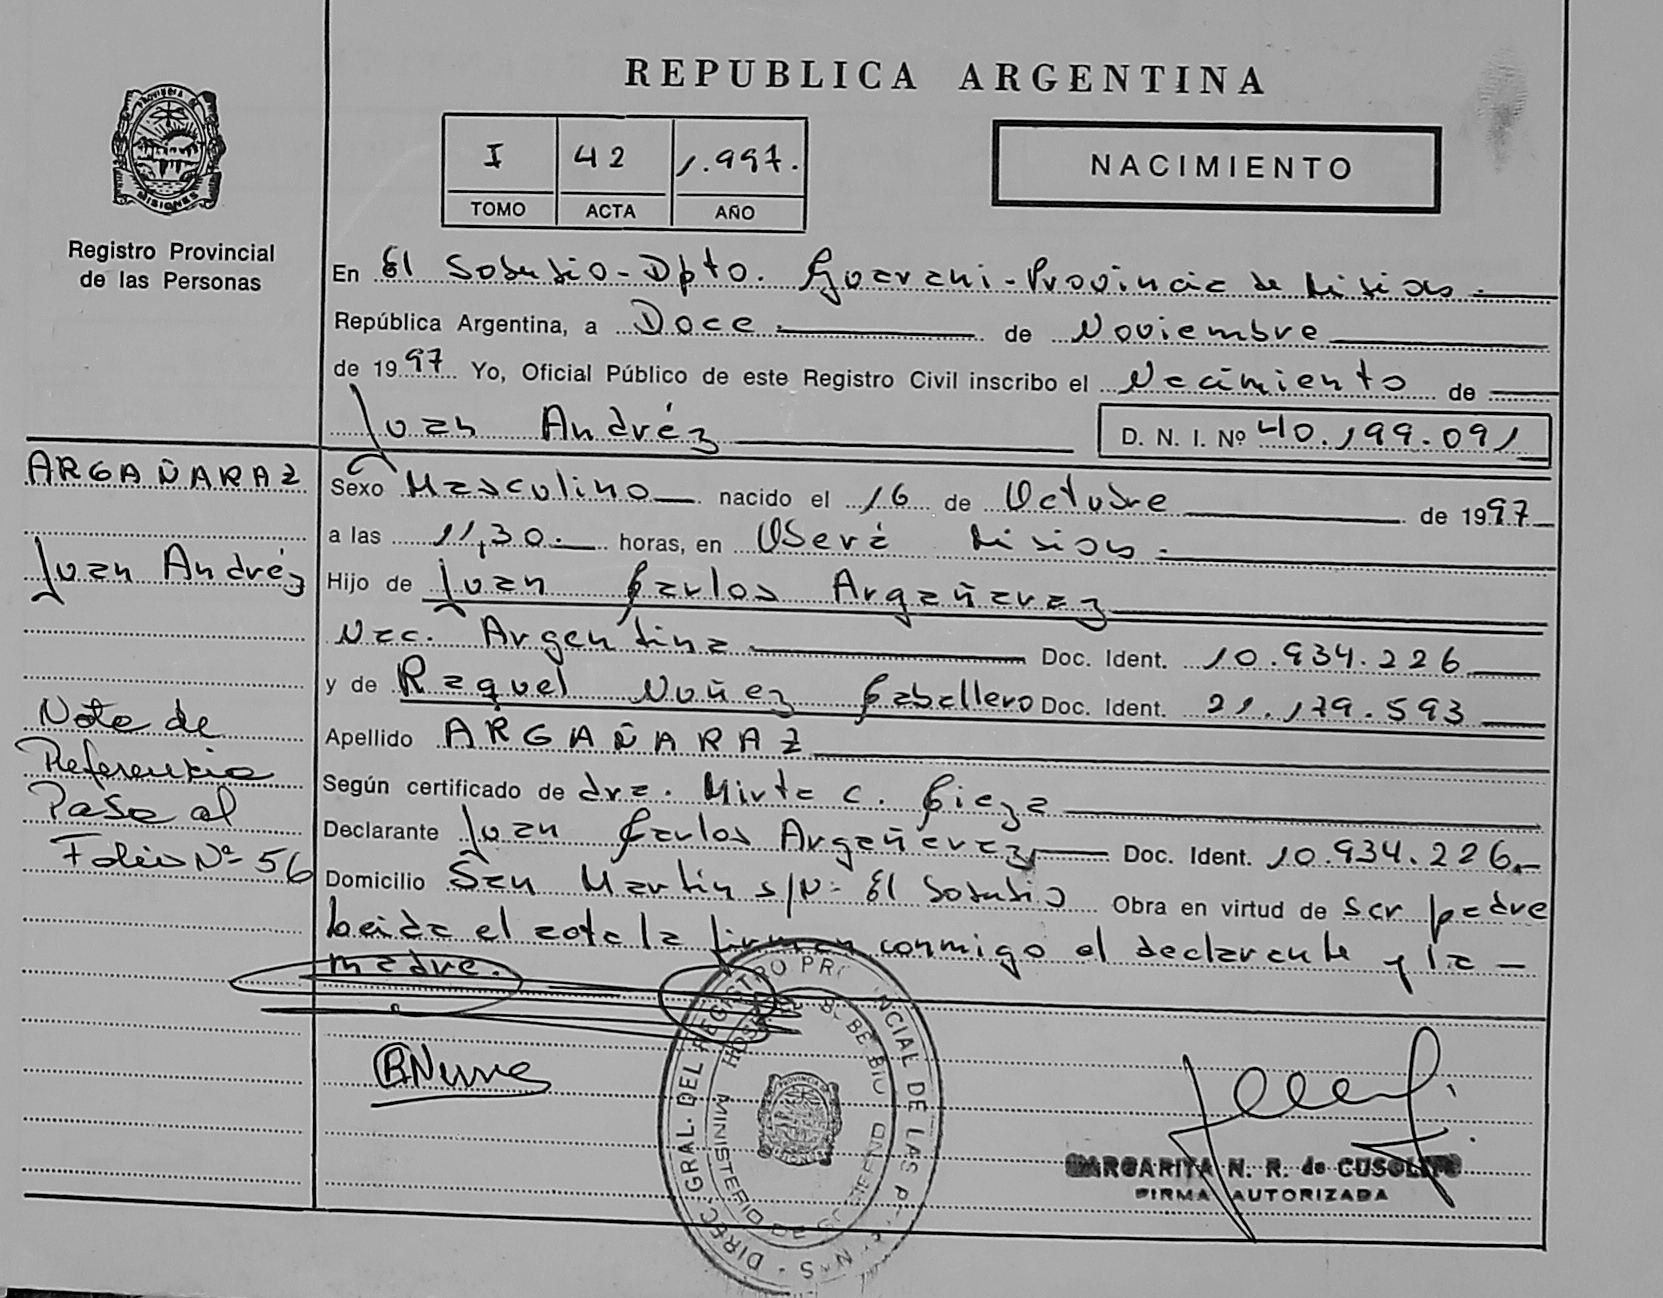 REPUBLICA ARGENTINA
PROVINCIA DE
MISIONES
Registro Provincial
de las Personas
I 42 1.997.
TOMO ACTA AÑO
NACIMIENTO
En El Soberbio - Dpto. Guarani - Provincia de Misiones.
República Argentina, a Doce de Noviembre
de 1997 Yo, Oficial Público de este Registro Civil inscribo el Nacimiento de
Juan Andréz D. N. I. Nº 40.199.091
ARGAÑARAZ
Juan Andréz
Sexo Masculino nacido el 16 de Octubre de 1997
a las 11,30. horas, en Oberá Misiones.
Hijo de Juan Carlos Argañaraz
Nac. Argentina Doc. Ident. 10.934.226
y de Raquel Nuñez Caballero Doc. Ident. 21.179.593
Apellido ARGAÑARAZ
Según certificado de dra. Mirta C. Cieza
Declarante Juan Carlos Argañaraz Doc. Ident. 10.934.226
Domicilio San Martin s/Nº El Soberbio Obra en virtud de ser padre
leida el acta la firman conmigo el declarante y la
madre.
Nota de
Referencia
Pasa al
Folio Nº 56
BNunes
DIREC. GRAL. DEL REGISTRO PROVINCIAL DE LAS
MINISTERIO DE GOBIERNO
MARGARITA N. R. de
FIRMA AUTORIZADA